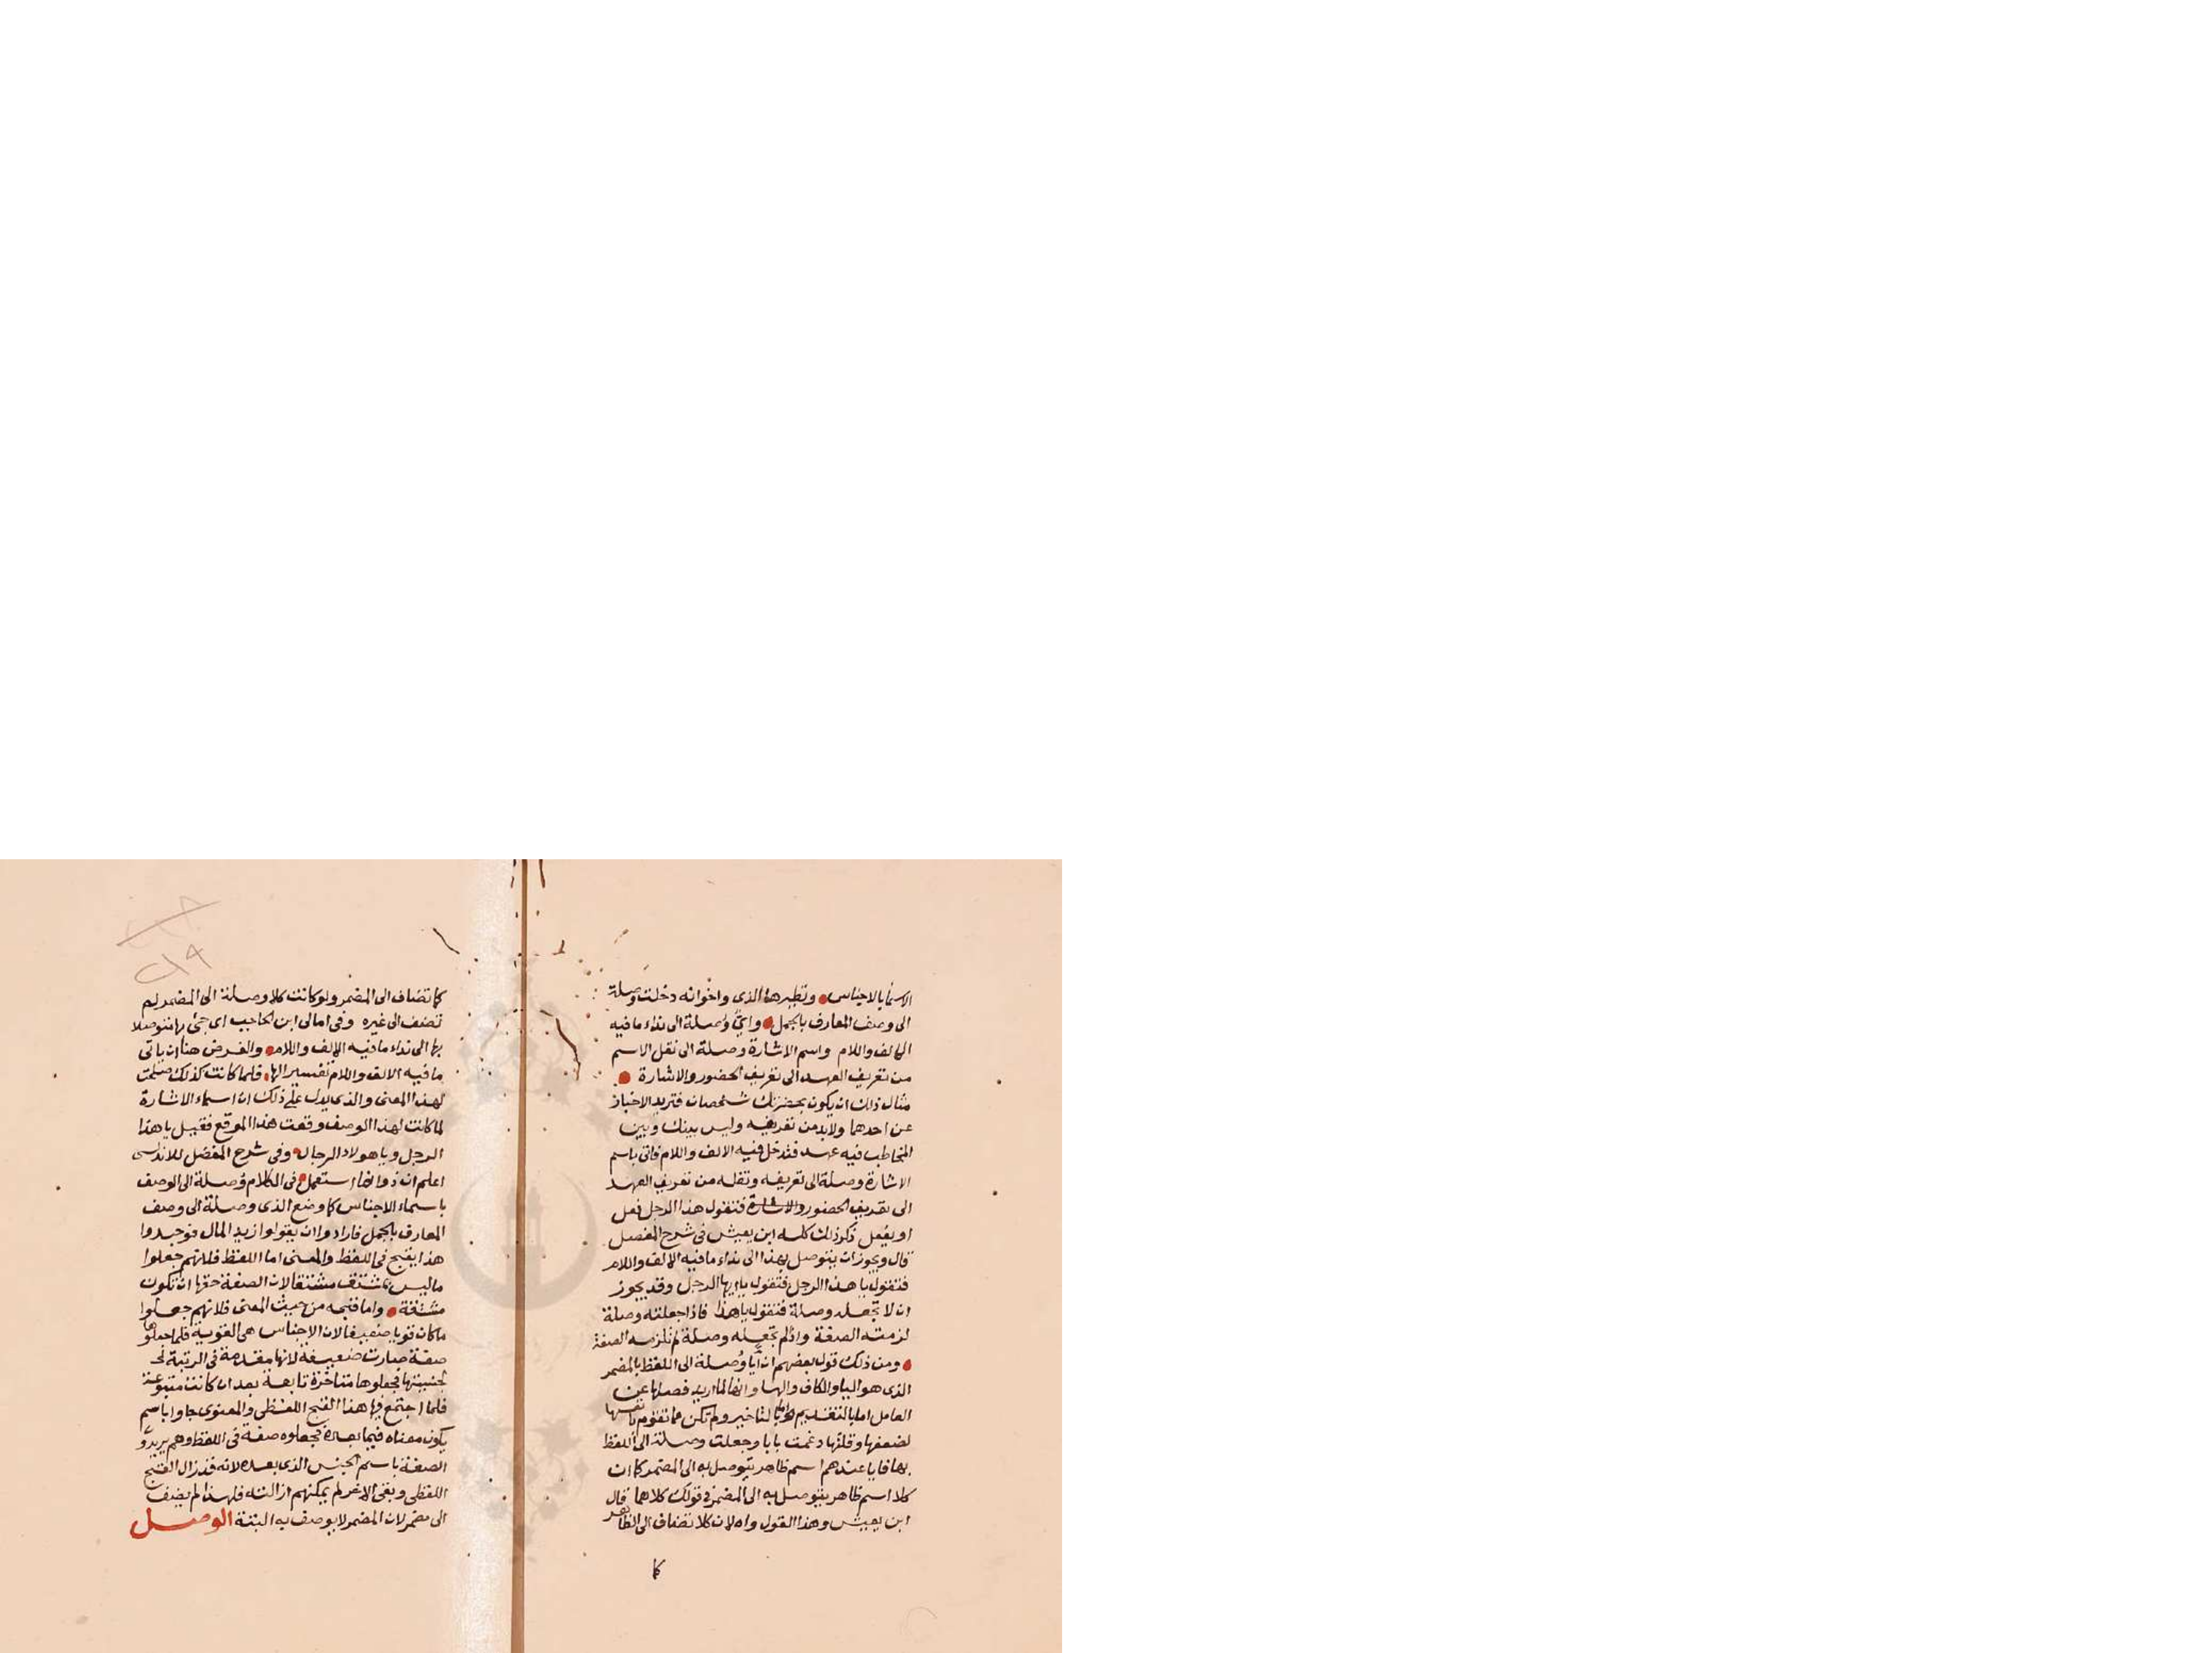 الاسما بالاجناس ونظيرها الذى واخوانه دخلت وصلة
الى وصف المعارف بالجمل واىّ وُصلة الى نداء ما فيه
الالف واللام واسم الاشارة وصلة الى نقل الاسم
من تعريف العهد الى تعريف الحضور والاشارة
مثال ذلك ان يكون بحضرتك شخصان فتريد الاخبار
عن احدهما ولابد من تعريفه وليس بينك وبين
المخاطب فيه عهد فتدخل فيه الالف واللام فاتى باسم
الاشارة وصلة الى تعريفه ونقله من تعريف العهد
الى تعريف الحضور والاشارة فتقول هذا الرجل فعل
او يفعل ذكر ذلك كله ابن يعيش فى شرح المفصل
قال ويجوز ان يتوصل بهذا الى نداء ما فيه الالف واللام
فتقول يا هذا الرجل فتقول يا ايها الرجل وقد يجوز
ان لا تجعله وصلة فتقول يا هذا فاذا جعلته وصلة
لزمته الصفة واذا لم تجعله وصلة لم تلزمه الصفة
ومن ذلك قول بعضهم ان ايا وُصلة الى اللفظ بالمضمر
الذى هو اليا والكاف والها وانها لما اريد فصلها عن
العامل اما بالتقديم واما بالتاخير ولم تكن مما تقوم بانفسها
لضعفها وقلتها دغمت بايا وجعلت وصلة الى اللفظ
بها فايا عندهم اسم ظاهر يتوصل به الى المضمر كما ان
كلا اسم ظاهر يتوصل به الى المضمر فى قولك كلاهما قال
ابن يعيش وهذا القول واه لان كلا تضاف الى الظاهر
كما
كما تضاف الى المضمر ولو كانت كلا وصلة الى المضمر لم
تضف الى غيره وفى امالى ابن الحاجب اى جئ بها متوصلا
بها الى نداء ما فيه الالف واللام والغرض هنا ان ياتى
ما فيه الالف واللام تفسيرا لها فلما كانت كذلك صلحت
لهذا المعنى والذى يدل على ذلك ان اسماء الاشارة
لما كانت لهذا الوصف وقعت هذا الموقع فقيل يا هذا
الرجل ويا هولاء الرجال وفى شرح المفصل للاندلسى
اعلم ان ذو انما استعمل فى الكلام وُصلة الى الوصف
باسماء الاجناس كما وضع الذى وصلة الى وصف
المعارف بالجمل فارادوا ان يقولوا زيد المال فوجدوا
هذا يقبح فى اللفظ والمعنى اما اللفظ فلانهم جعلوا
ما ليس بمشتق مشتقا لان الصفة حقها ان تكون
مشتقة واما قبحه من حيث المعنى فلانهم جعلوا
ما كان قويا ضعيفا لان الاجناس هى القوية فلما جعلوها
صفة صارت ضعيفة لانها مقدمة فى الرتبة
لجنسيتها فجعلوها متاخرة تابعة بعد ان كانت متبوعة
فلما اجتمع فيها هذا القبح اللفظى والمعنوى جاوا باسم
يكون معناه فيما بعده فجعلوه صفة فى اللفظ وهم يريدو
الصفة باسم الجنس الذى بعده لانه قد زال القبح
اللفظى وبقى الاخر لم يمكنهم ازالته فلهذا لم يضف
الى مضمر لان المضمر لا يوصف به البتة الوصل